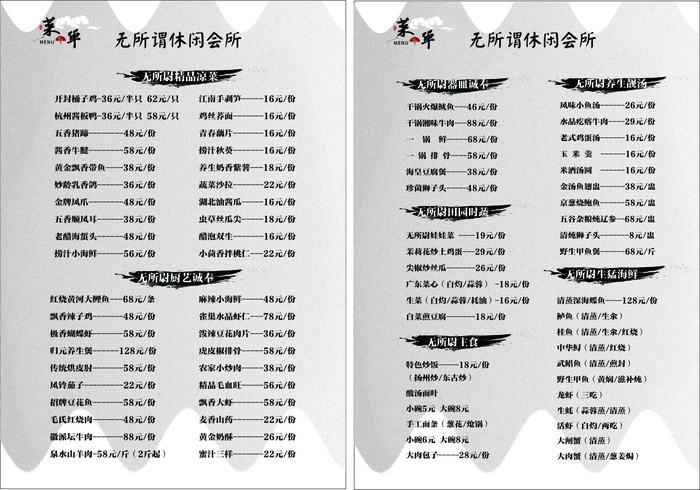 菜单
MENU
无所谓休闲会所
无所尉精品凉菜
开封桶子鸡-36元/半只 62元/只
杭州酱板鸭-36元/半只 58元/只
五香猪蹄------48元/份
酱香牛腱------58元/份
黄金飘香带鱼---38元/份
妙龄乳香鸽----36元/份
金牌凤爪------48元/份
五香顺风耳----38元/份
老醋海蛋头----48元/份
捞汁小海鲜----56元/份
江南手剥笋----16元/份
鸡丝荞面------16元/份
青春藕片------16元/份
捞汁秋葵------16元/份
养生奶香紫薯--18元/份
蔬菜沙拉------22元/份
湖北油酱瓜----16元/份
虫草丝瓜尖----18元/份
醋泡双生------16元/份
小茴香拌桃仁--22元/份
无所尉厨艺诚奉
红烧黄河大鲤鱼---68元/条
飘香辣子鸡----48元/份
极香蝴蝶虾----58元/份
归元养生煲-----128元/份
传统烘皮肘----58元/份
风铃茄子------22元/份
招牌豆花鱼----58元/份
毛氏红烧肉----48元/份
徽派坛牛肉----88元/份
泉水山羊肉-58元/斤（2斤起）
麻辣小海鲜----48元/份
雀巢水晶虾仁--78元/份
泼辣豆花肉片--36元/份
虎皮椒排骨----58元/份
农家小炒肉----38元/份
精品毛血旺----56元/份
飘香大虾------58元/份
麦香山药------22元/份
黄金奶酥------26元/份
蜜汁三样------22元/份
菜单
MENU
无所谓休闲会所
无所尉器皿诚奉
干锅火爆鱿鱼---46元/份
干锅湘味牛肉---88元/份
一 锅 鲜------68元/份
一 锅 排 骨----58元/份
海皇豆腐煲----38元/份
珍菌狮子头----48元/份
无所尉田园时蔬
无所尉娃娃菜 ----19元/份
茉莉花炒土鸡蛋---29元/份
尖椒炒丝瓜------26元/份
广东菜心（白灼/蒜蓉）-18元/份
生菜（白灼/蒜蓉/耗油）-16元/份
白菜煎豆腐-------18元/份
无所尉主食
特色炒饭-----18元/份
（扬州炒/东古炒）
酸汤面叶
小碗5元 大碗8元
手工面条（葱花/炝锅）
小碗6元 大碗8元
大肉包子-----28元/份
无所尉养生靓汤
风味小鱼汤-----26元/份
水晶疙瘩牛肉---29元/份
老式鸡蛋汤-----16元/份
玉 米 羹 -----16元/份
米酒汤圆 -----16元/份
金汤鱼翅盅-----38元/盅
京葱烧鲍鱼-----58元/盅
五谷杂粮炖辽参--68元/盅
清炖狮子头------8元/盅
野生甲鱼煲-----68元/斤
无所尉生猛海鲜
清蒸深海蝶鱼----128元/份
鲈鱼（清蒸/生汆）
桂鱼（清蒸/生汆/红烧）
中华鲟（清蒸/红烧）
武昌鱼（清蒸/煎封）
野生甲鱼（黄焖/滋补炖）
龙虾（三吃）
生蚝（蒜蓉蒸/清蒸）
活虾（白灼/两吃）
大闸蟹（清蒸）
大肉蟹（清蒸/葱姜焗）